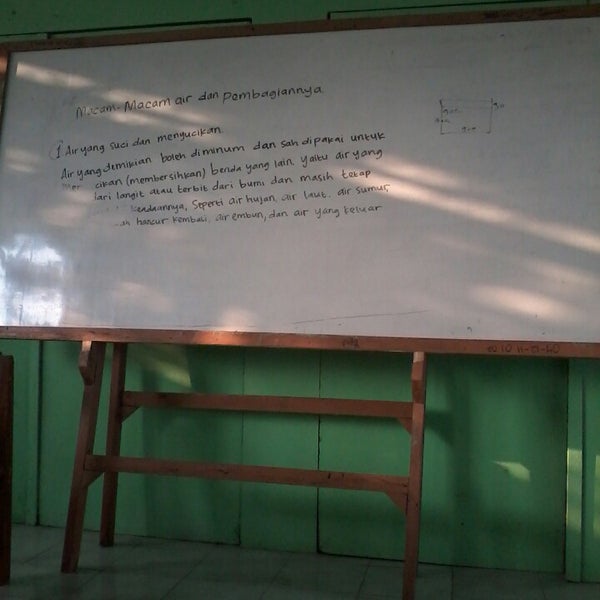 Macam-Macam air dan Pembagiannya
1. Air yang suci dan menyucikan
Air yang demikian boleh diminum dan sah dipakai untuk
cikan (membersihkan) benda yang lain yaitu air yang
dari langit atau terbit dari bumi dan masih tetap
keadaannya, seperti air hujan, air laut, air sumur,
hancur kembali, air embun, dan air yang keluar